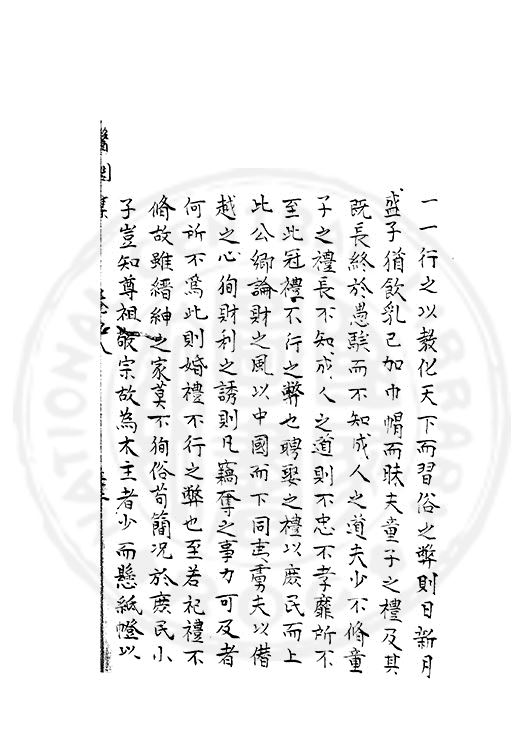 一一行之以敎化天下而習俗之弊則日新月
盛子猶飲乳已加巾帽而昧夫童子之禮及其
既長終於愚騃而不知成人之道夫少不脩童
子之禮長不知成人之道則不忠不孝靡所不
至此冠禮不行之弊也聘娶之禮以庶民而上
此公卿論財之風以中國而下同夷虜夫以僣
越之心狥財利之誘則凡竊奪之事力可及者
何所不爲此則婚禮不行之弊也至若祀禮不
脩故雖縉紳之家莫不狥俗苟簡况於庶民小
子豈知尊祖敬宗故為木主者少而懸紙以
醫閭集